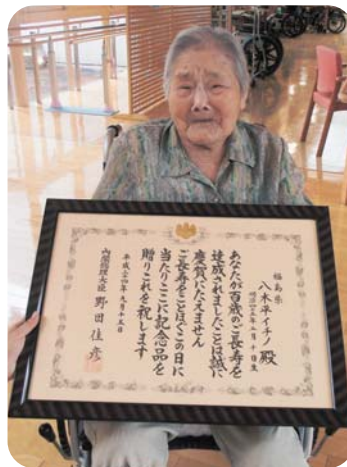 福島県
八木平イチノ殿
あなたが百歳のご長寿を
達成されましたことは誠に
慶賀にたえません
ご長寿をことほぐこの日に
当たりここに記念品を
贈りこれを祝します
平成二十四年九月十五日
内閣総理大臣 野田佳彦